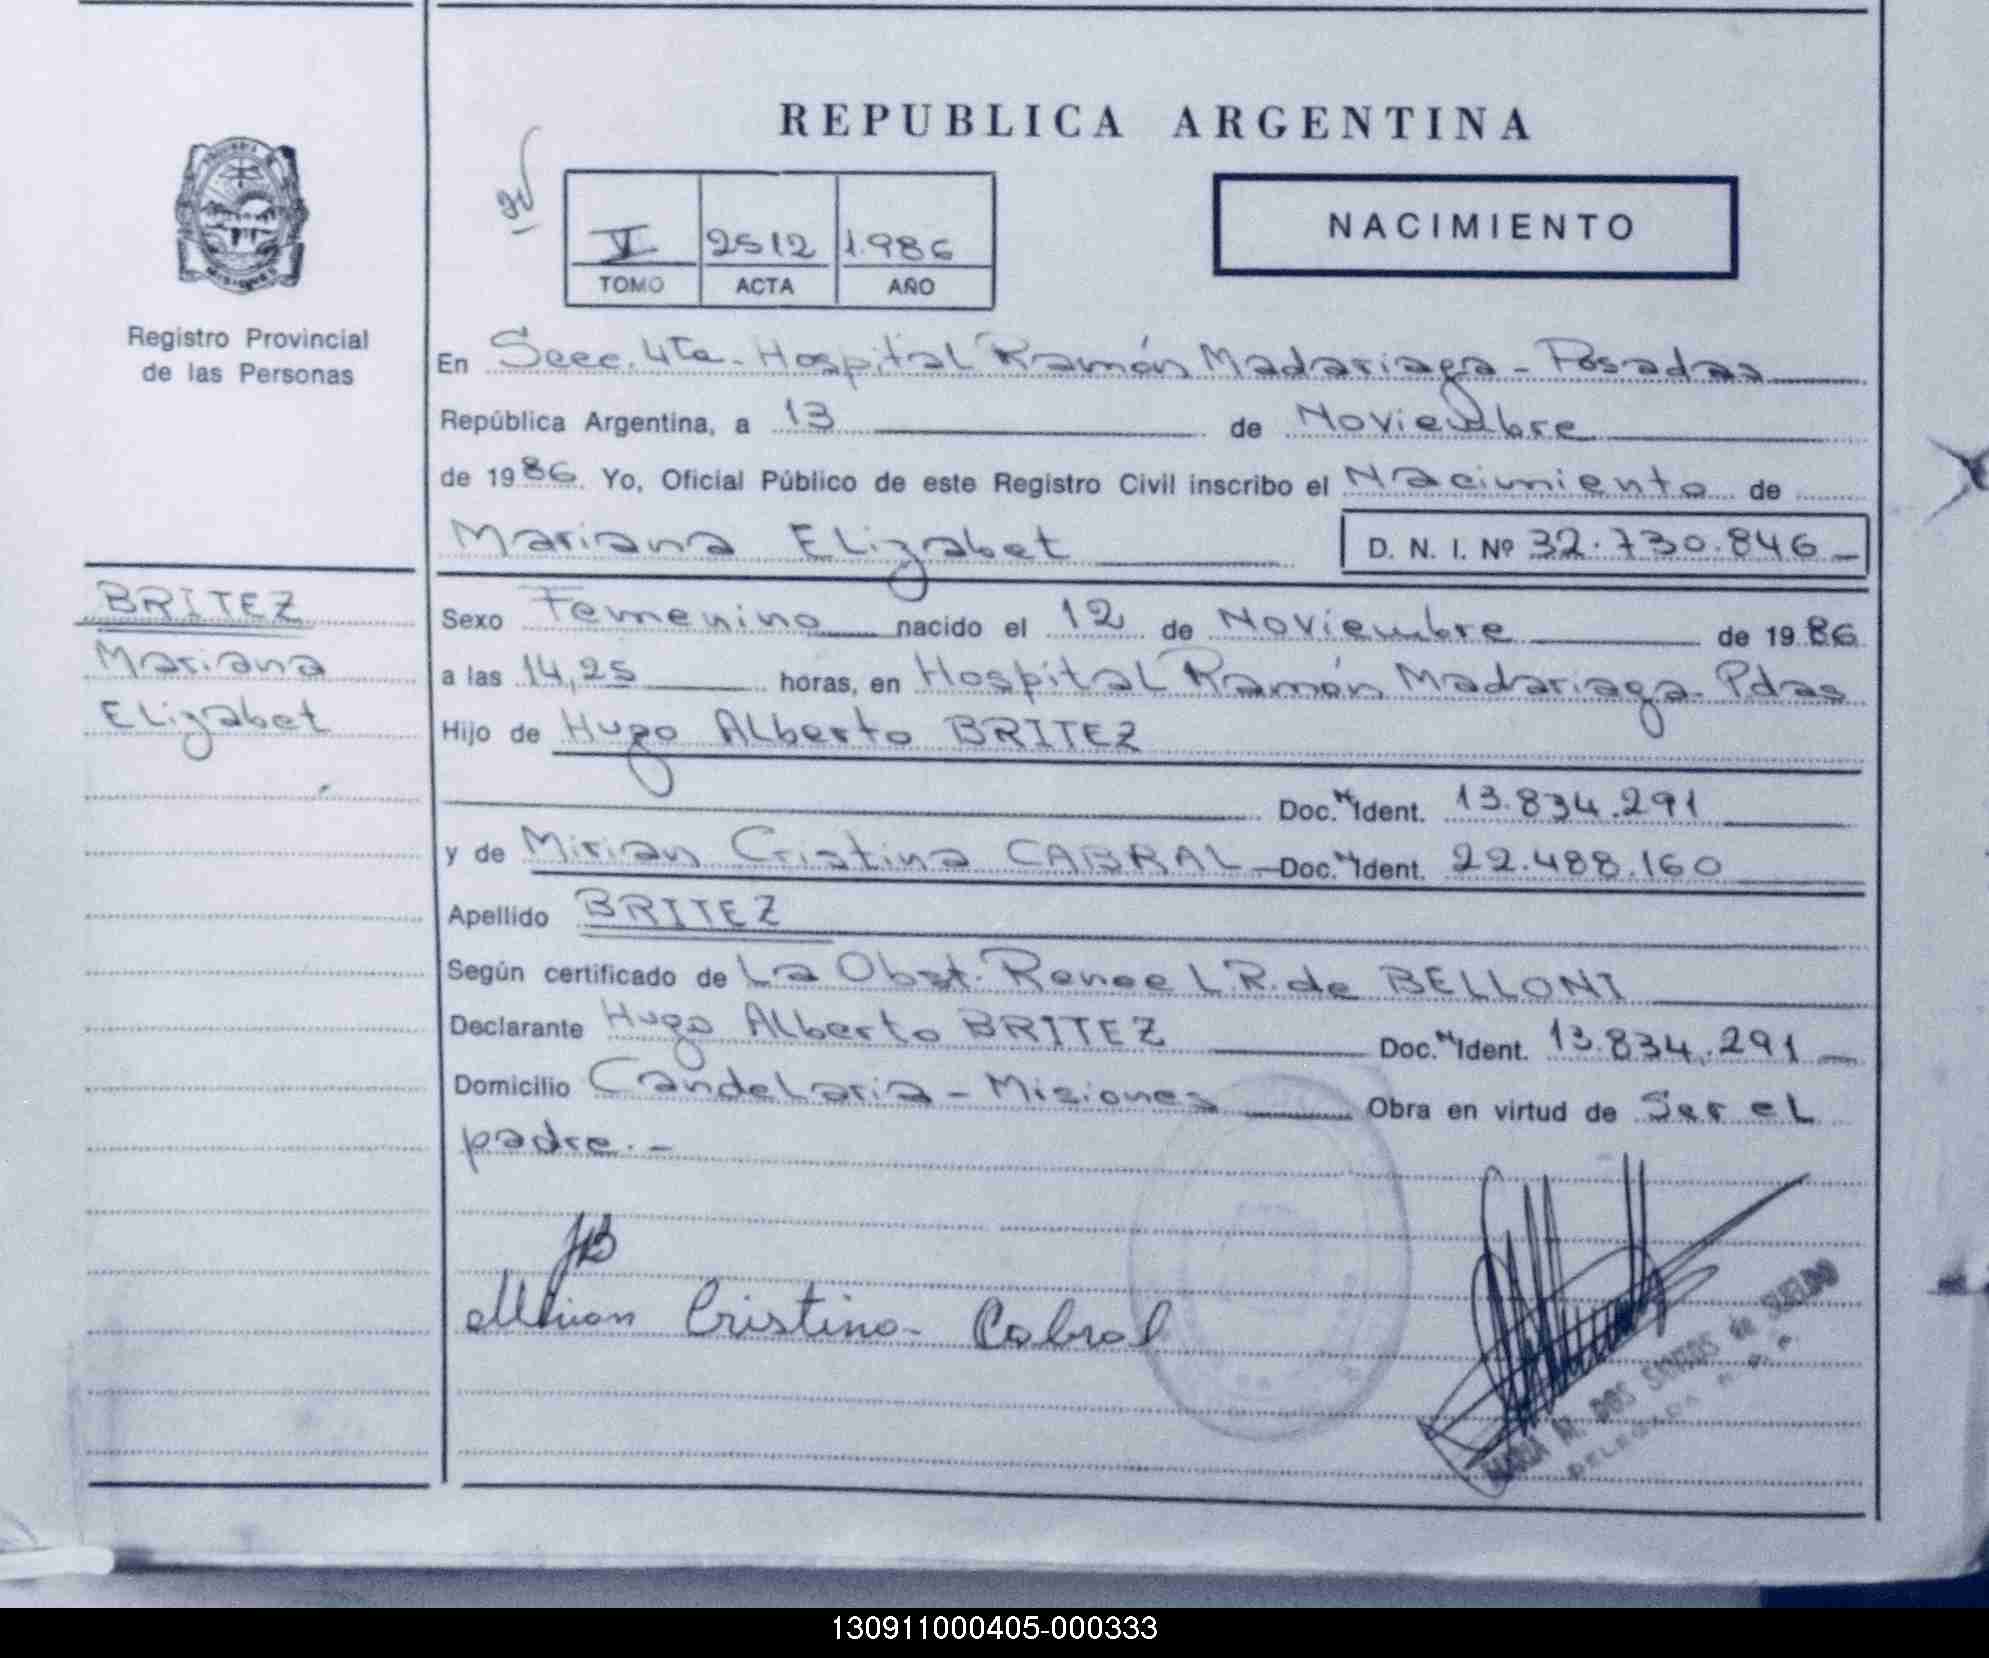 REPUBLICA ARGENTINA
V 2512 1.986
TOMO ACTA AÑO
NACIMIENTO
Registro Provincial
de las Personas
En Secc. 4ta - Hospital Ramón Madariaga - Posadas
República Argentina, a 13 de Noviembre
de 1986. Yo, Oficial Público de este Registro Civil inscribo el Nacimiento de
Mariana Elizabet D. N. I. Nº 32.730.846
BRITEZ
Mariana
Elizabet
Sexo Femenino nacido el 12 de Noviembre de 1986
a las 14,25 horas, en Hospital Ramón Madariaga - Pdas
Hijo de Hugo Alberto BRITEZ
Doc. Ident. 13.834.291
y de Mirian Cristina CABRAL - Doc. Ident. 22.488.160
Apellido BRITEZ
Según certificado de La Obst. Renee L.R. de BELLONI
Declarante Hugo Alberto BRITEZ Doc. Ident. 13.834.291
Domicilio Candelaria - Misiones Obra en virtud de Ser el
padre.-
Mirian Cristina Cabral
MARIA M. DOS SANTOS de SUELDO
DELEGADA R. P. P.
130911000405-000333